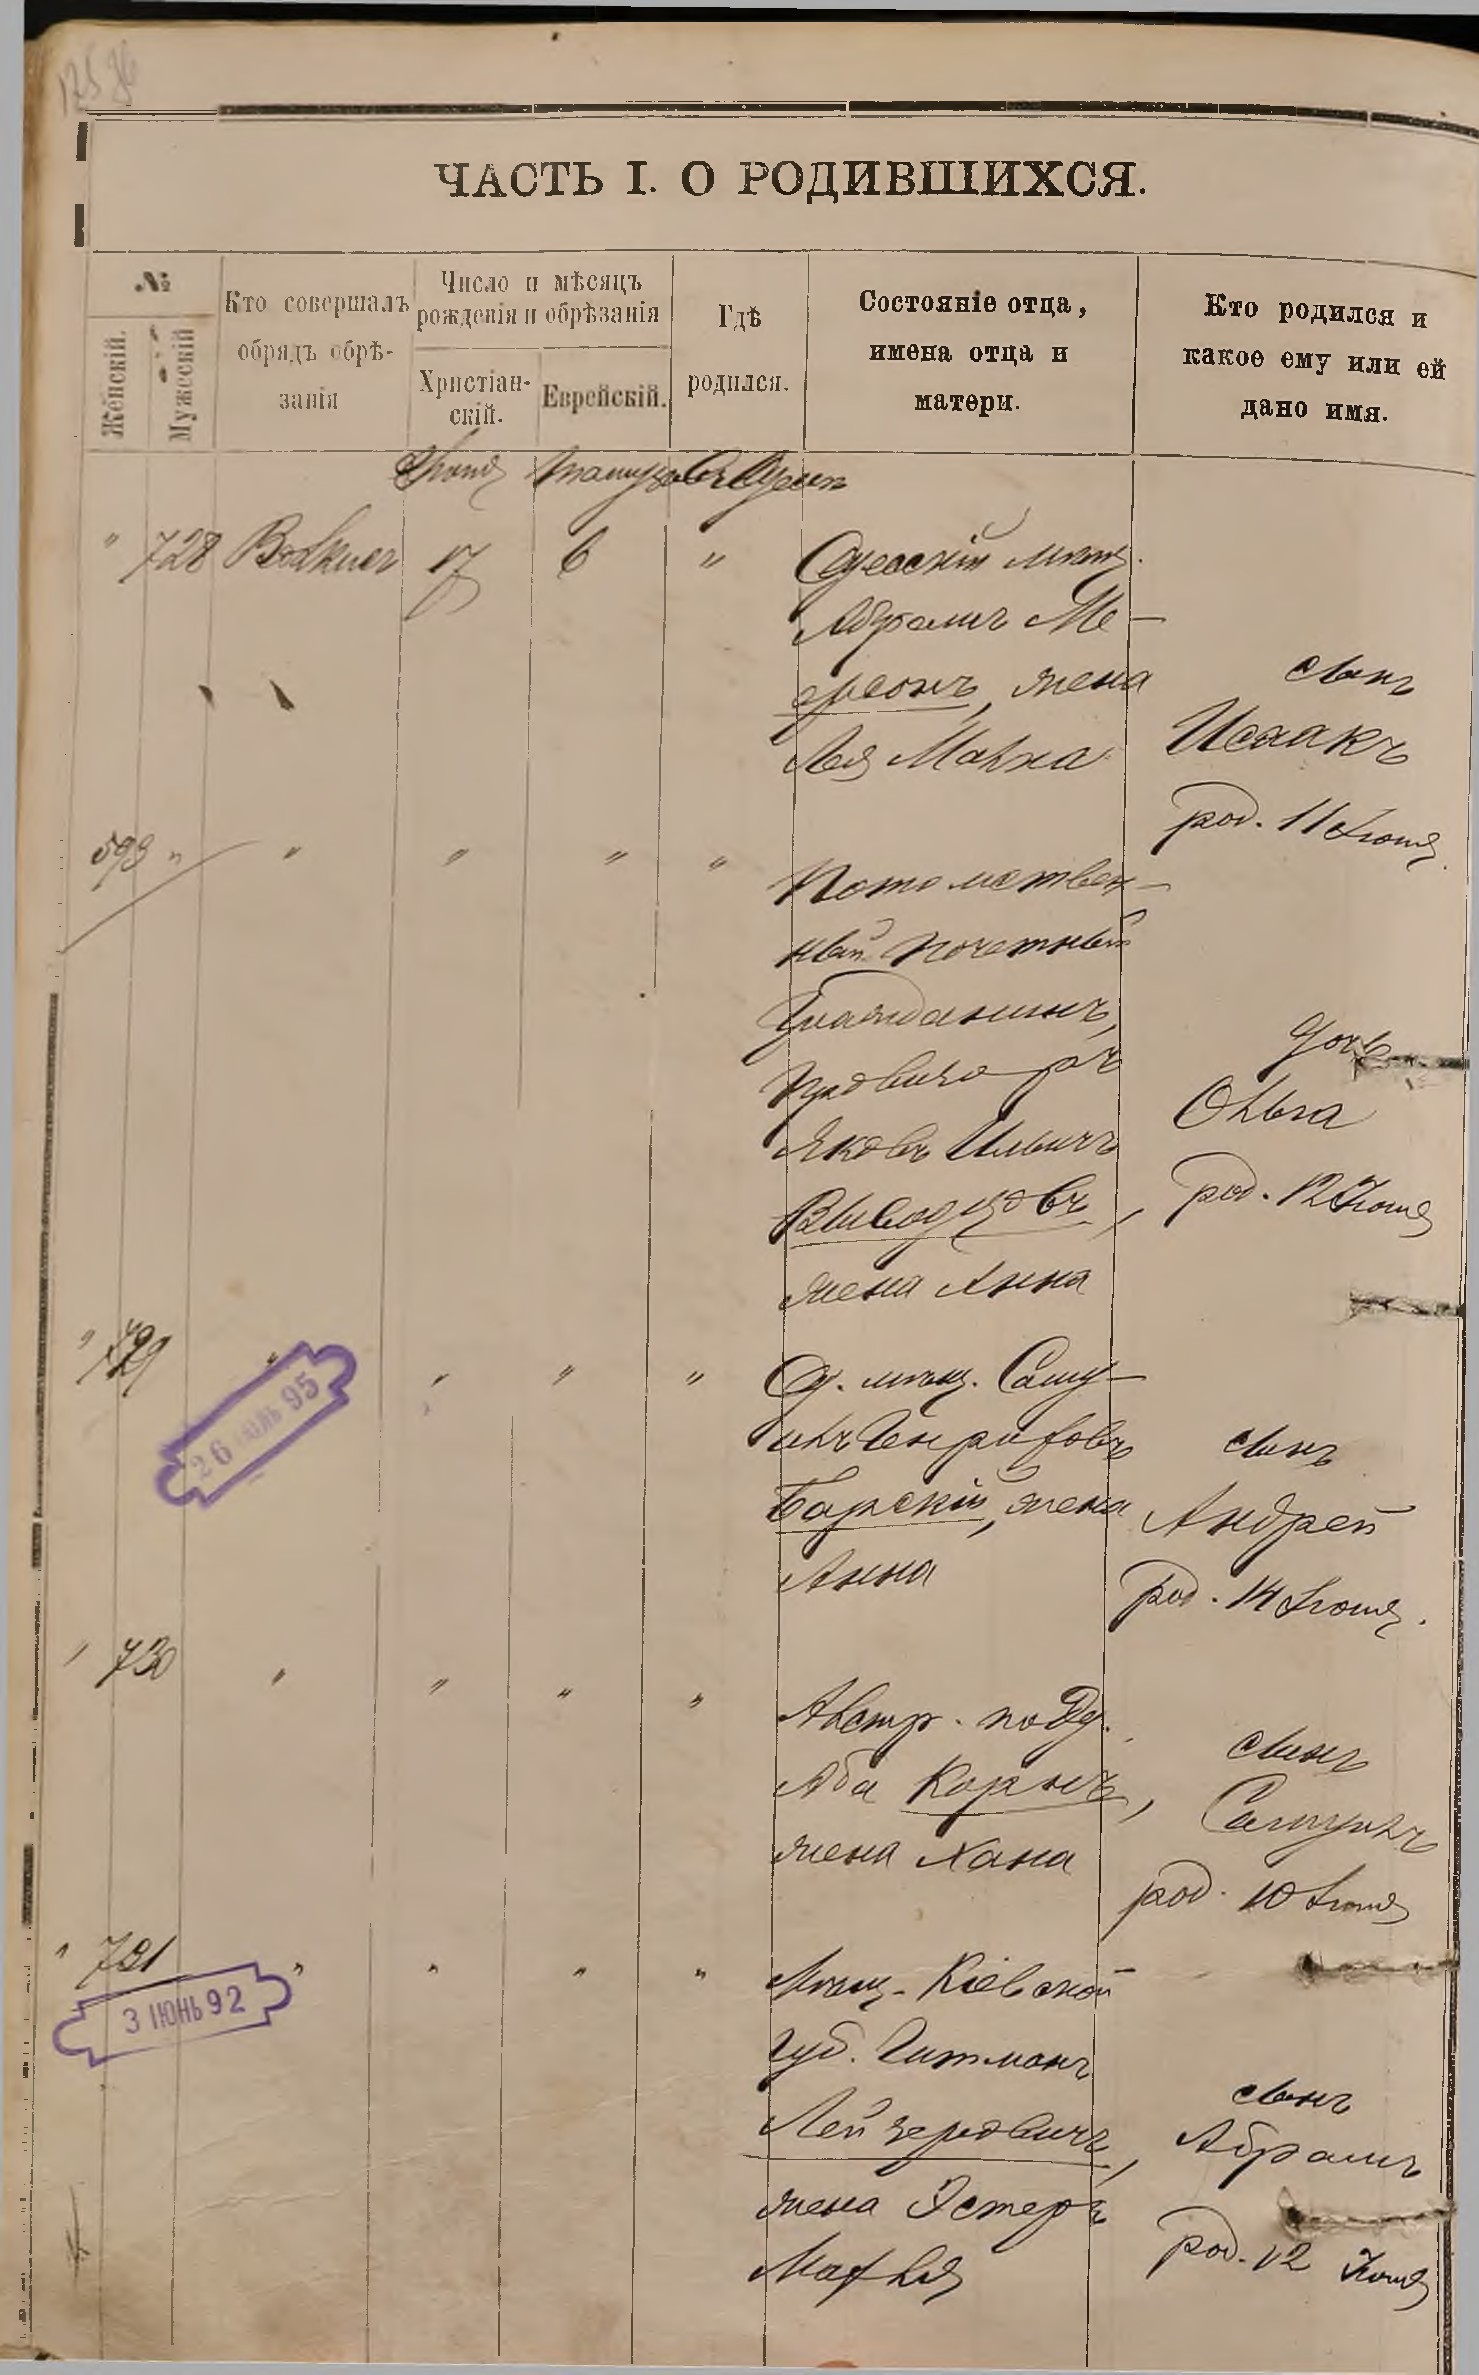 ЧАСТЬ I. О РОДИВШИХСЯ.
№
Женскій.
Мужескій
Кто совершалъ
обрядъ обрѣ-
занія
Число и мѣсяцъ
рожденія и обрѣзанія
Христіан-
скій.
Еврейскій.
Гдѣ
родился.
Состояніе отца,
имена отца и
матери.
Кто родился и
какое ему или ей
дано имя.
Іюня Тамуза въ Одессѣ
" 728 17 6 "
Одесскій мѣщ.
Абрамъ Ме-
ерсонъ, жена
Лея Малка
сынъ
Исаакъ
род. 11 Іюня
593 " " " " "
Потомствен-
ный почетный
Гражданинъ,
Провизоръ
Яковъ Ильичъ
Выводцовъ,
жена Анна
дочь
Ольга
род. 12 Іюня
" 729 " " " "
26 ІЮЛЬ 95
Од. мѣщ. Саму-
илъ Генриховъ
Барскій, жена
Анна
сынъ
Андрей
род. 14 Іюня.
" 730 " " " "
Австр. подд.
Аба Корнъ,
жена Хана
сынъ
Самуилъ
род. 10 Іюня
" 731 " " " "
3 ІЮНЬ 92
Мѣщ. Кіевской
губ. Гитманъ
Лейзеровичъ,
жена Эстеръ
Малья
сынъ
Абрамъ
род. 12 Іюня